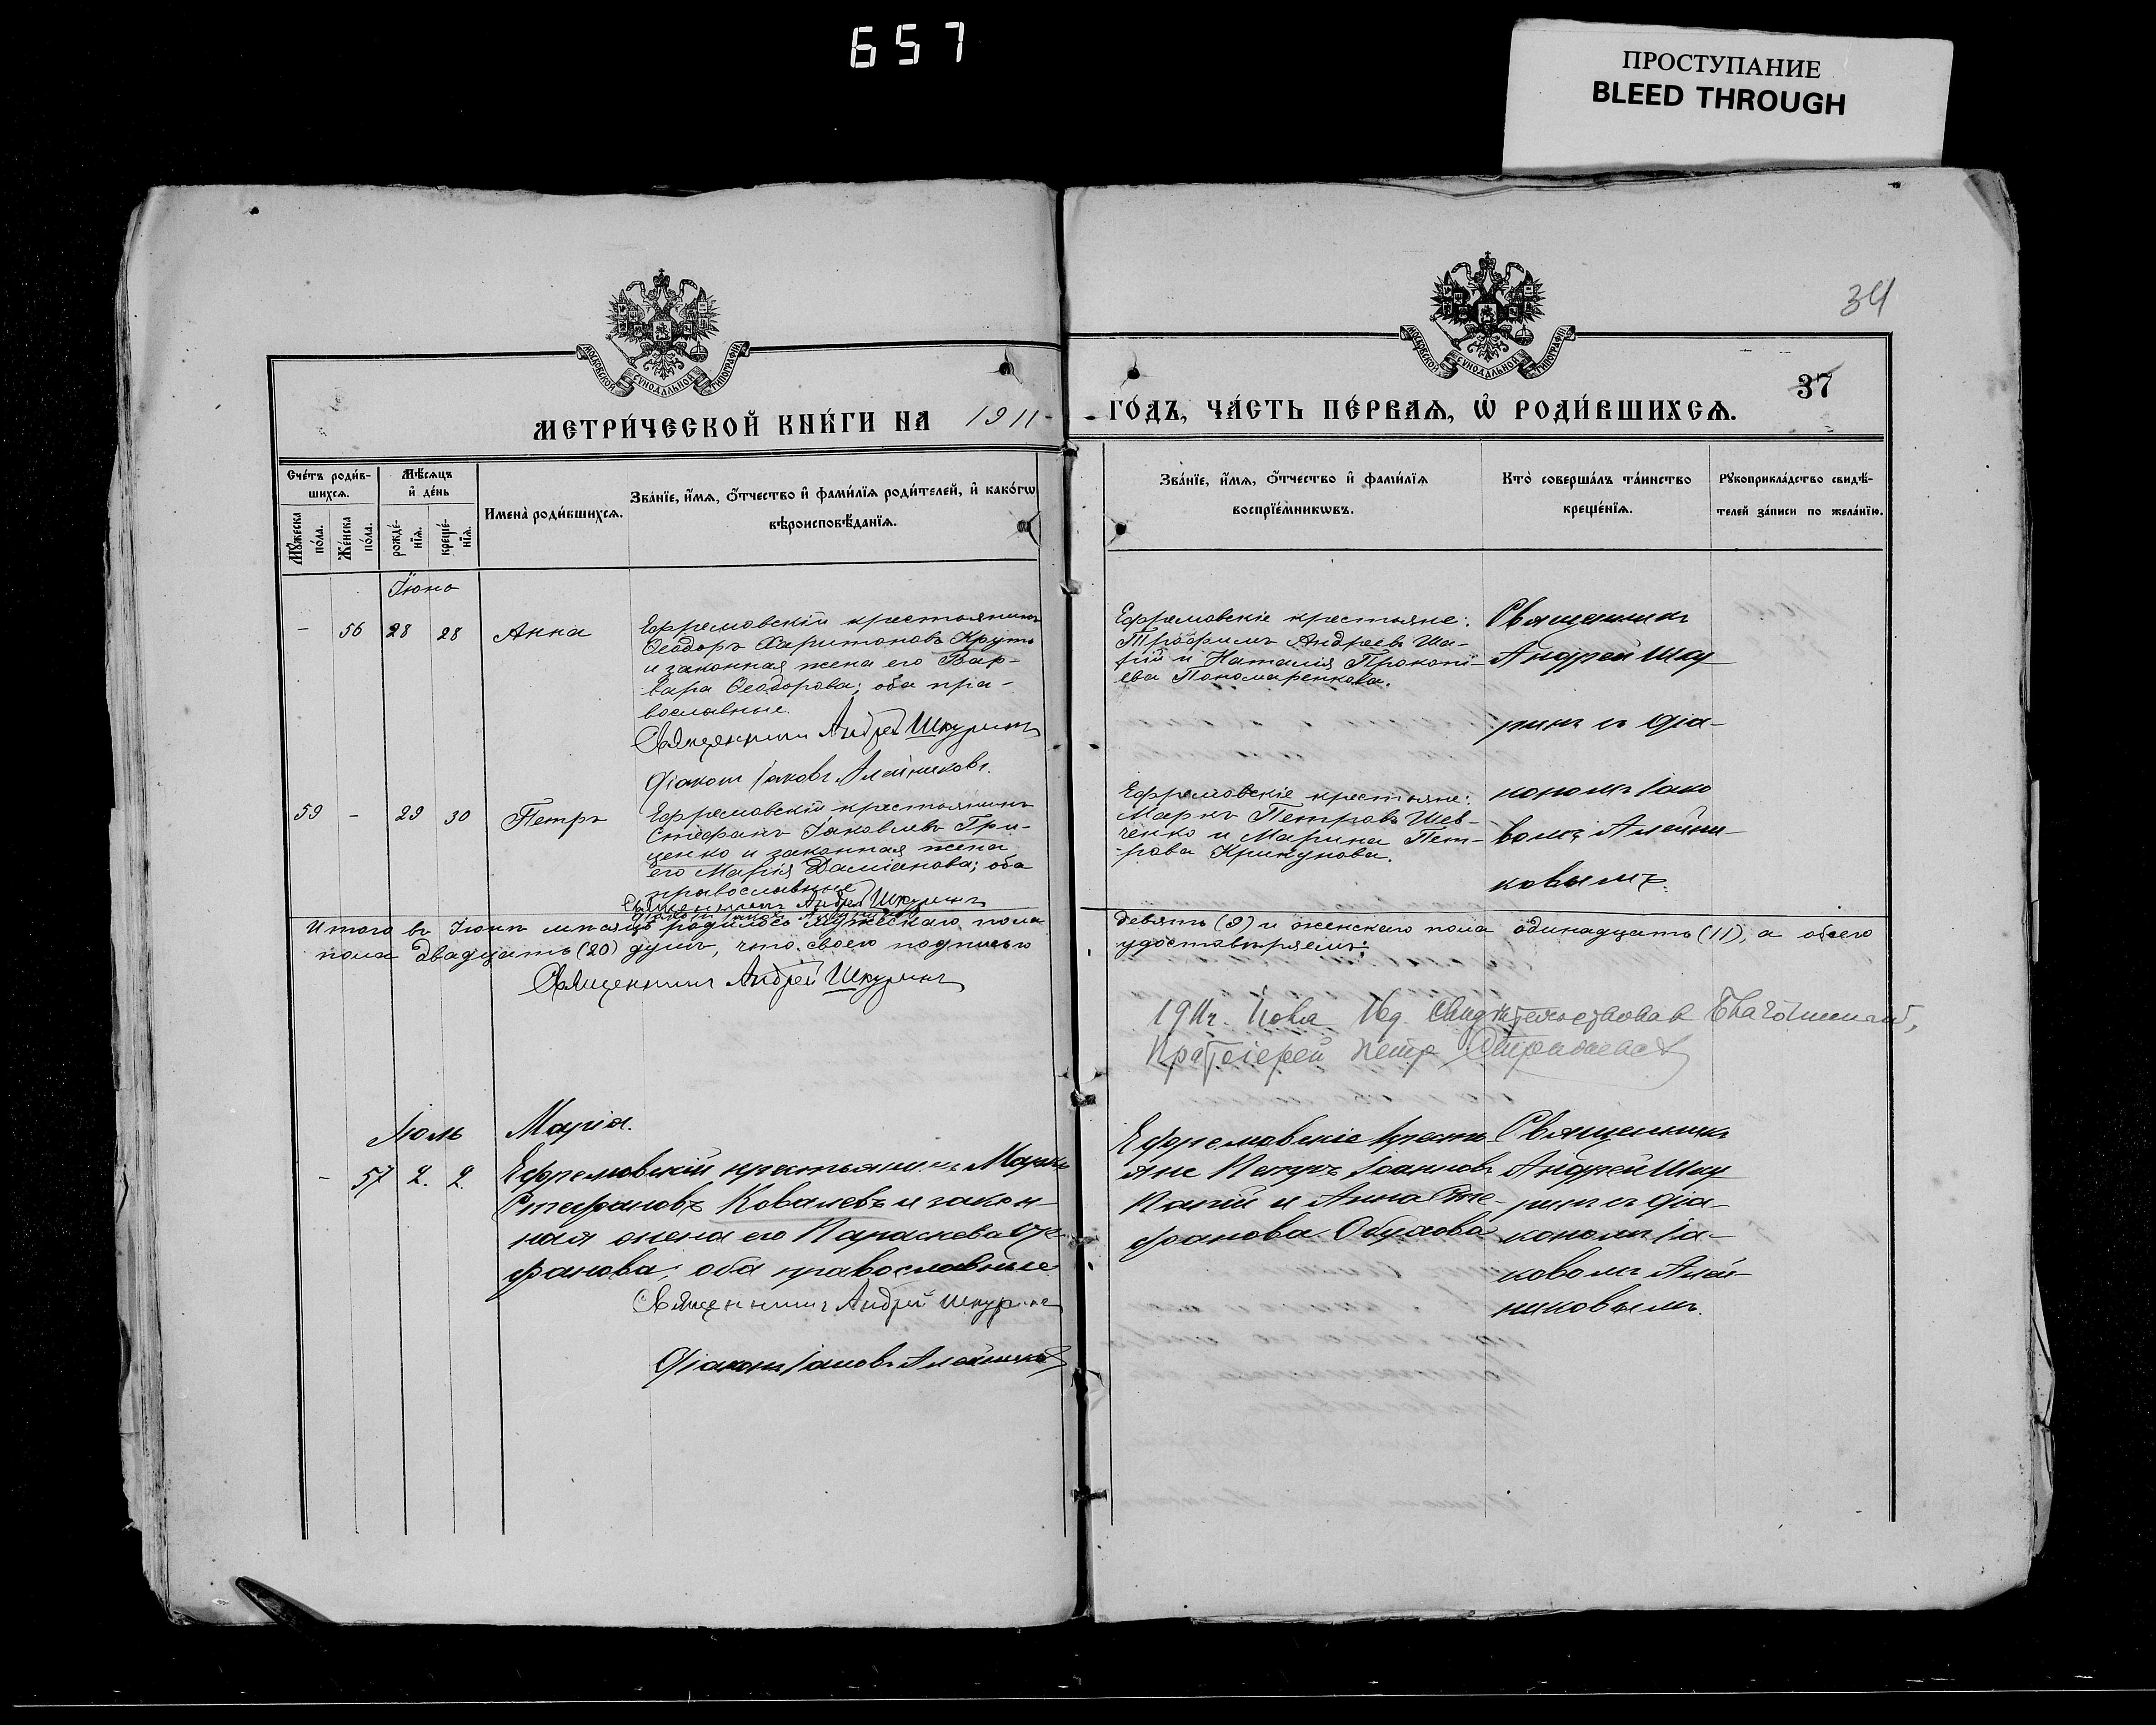 657
ПРОСТУПАНИЕ
BLEED THROUGH
34
МОСКОВСКОЙ СѴНОДАЛЬНОЙ ТИПОГРАФІИ
МОСКОВСКОЙ СѴНОДАЛЬНОЙ ТИПОГРАФІИ
37
МЕТРИ́ЧЕСКОЙ КНИ́ГИ НА 1911
ГО́ДЪ, ЧА́СТЬ ПЕ́РВАѦ, Ѡ҆ РОДИ́ВШИХСѦ.
Сче́тъ роди́в-
шихсѧ.
Мꙋ́жеска
по́ла.
Же́нска
по́ла.
Мѣ́сѧцъ
и҆ де́нь
рожде́-
нїѧ.
креще́-
нїѧ.
Имена̀ роди́вшихсѧ.
Зва́нїе, и҆́мѧ, ѻ҆́тчество и҆ фами́лїѧ роди́телей, и҆ како́гѡ
вѣроисповѣ́данїѧ.
Зва́нїе, и҆́мѧ, ѻ҆́тчество и҆ фами́лїѧ
воспрїе́мникѡвъ.
Кто̀ соверша́лъ та́инство
креще́нїѧ.
Рꙋкоприкла́дство свидѣ́-
телей за́писи по жела́нїю.
Іюнь
- 56 28 28 Анна
Ефремовскій крестьянинъ
Ѳеодоръ Харитоновъ Круть
и законная жена его Вар-
вара Ѳеодорова; оба пра-
вославные.
Священникъ Андрей Шкуринъ
Діаконъ Іаковъ Алейниковъ.
Ефремовскіе крестьяне:
Трофимъ Андреевъ Ша-
рій и Наталія Прокопі-
ева Пономаренкова.
Священникъ
Андрей Шку
ринъ съ діа-
кономъ Іако
вомъ Алейни-
ковымъ.
59 - 29 30 Петръ
Ефремовскій крестьянинъ
Стефанъ Іаковлевъ Гри-
ценко и законная жена
его Марія Даміанова; оба
православные
Священникъ Андрей Шкуринъ
Діаконъ Іаковъ Алейниковъ
Ефремовскіе крестьяне:
Маркъ Петровъ Шев-
ченко и Марина Пет-
рова Крикунова.
Итого въ Іюнѣ мѣсяцѣ родилось мужескаго пола
девять (9) и женскаго пола одинадцать (11), а обоего
пола двадцать (20) душъ, что своею подписью
удостовѣряемъ:
Священникъ Андрей Шкуринъ
1911г. Іюля 16д. Свидѣтельствовалъ Благочинный,
Протоіерей Петръ
Іюль Марія.
- 57 2. 2.
Ефремовскій крестьянинъ Маркъ
Стефановъ Ковалевъ и закон-
ная жена его Параскева Сте-
фанова; оба православные
Священникъ Андрей Шкуринъ
Діаконъ Іаковъ Алейниковъ
Ефремовскіе кресть
яне Петръ Іоанновъ
и Анна Сте-
фанова Обухова
Священникъ
Андрей Шку
ринъ съ діа-
кономъ Іа-
ковомъ Алей-
никовымъ.